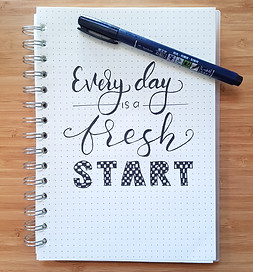 Every day
IS A
fresh
START